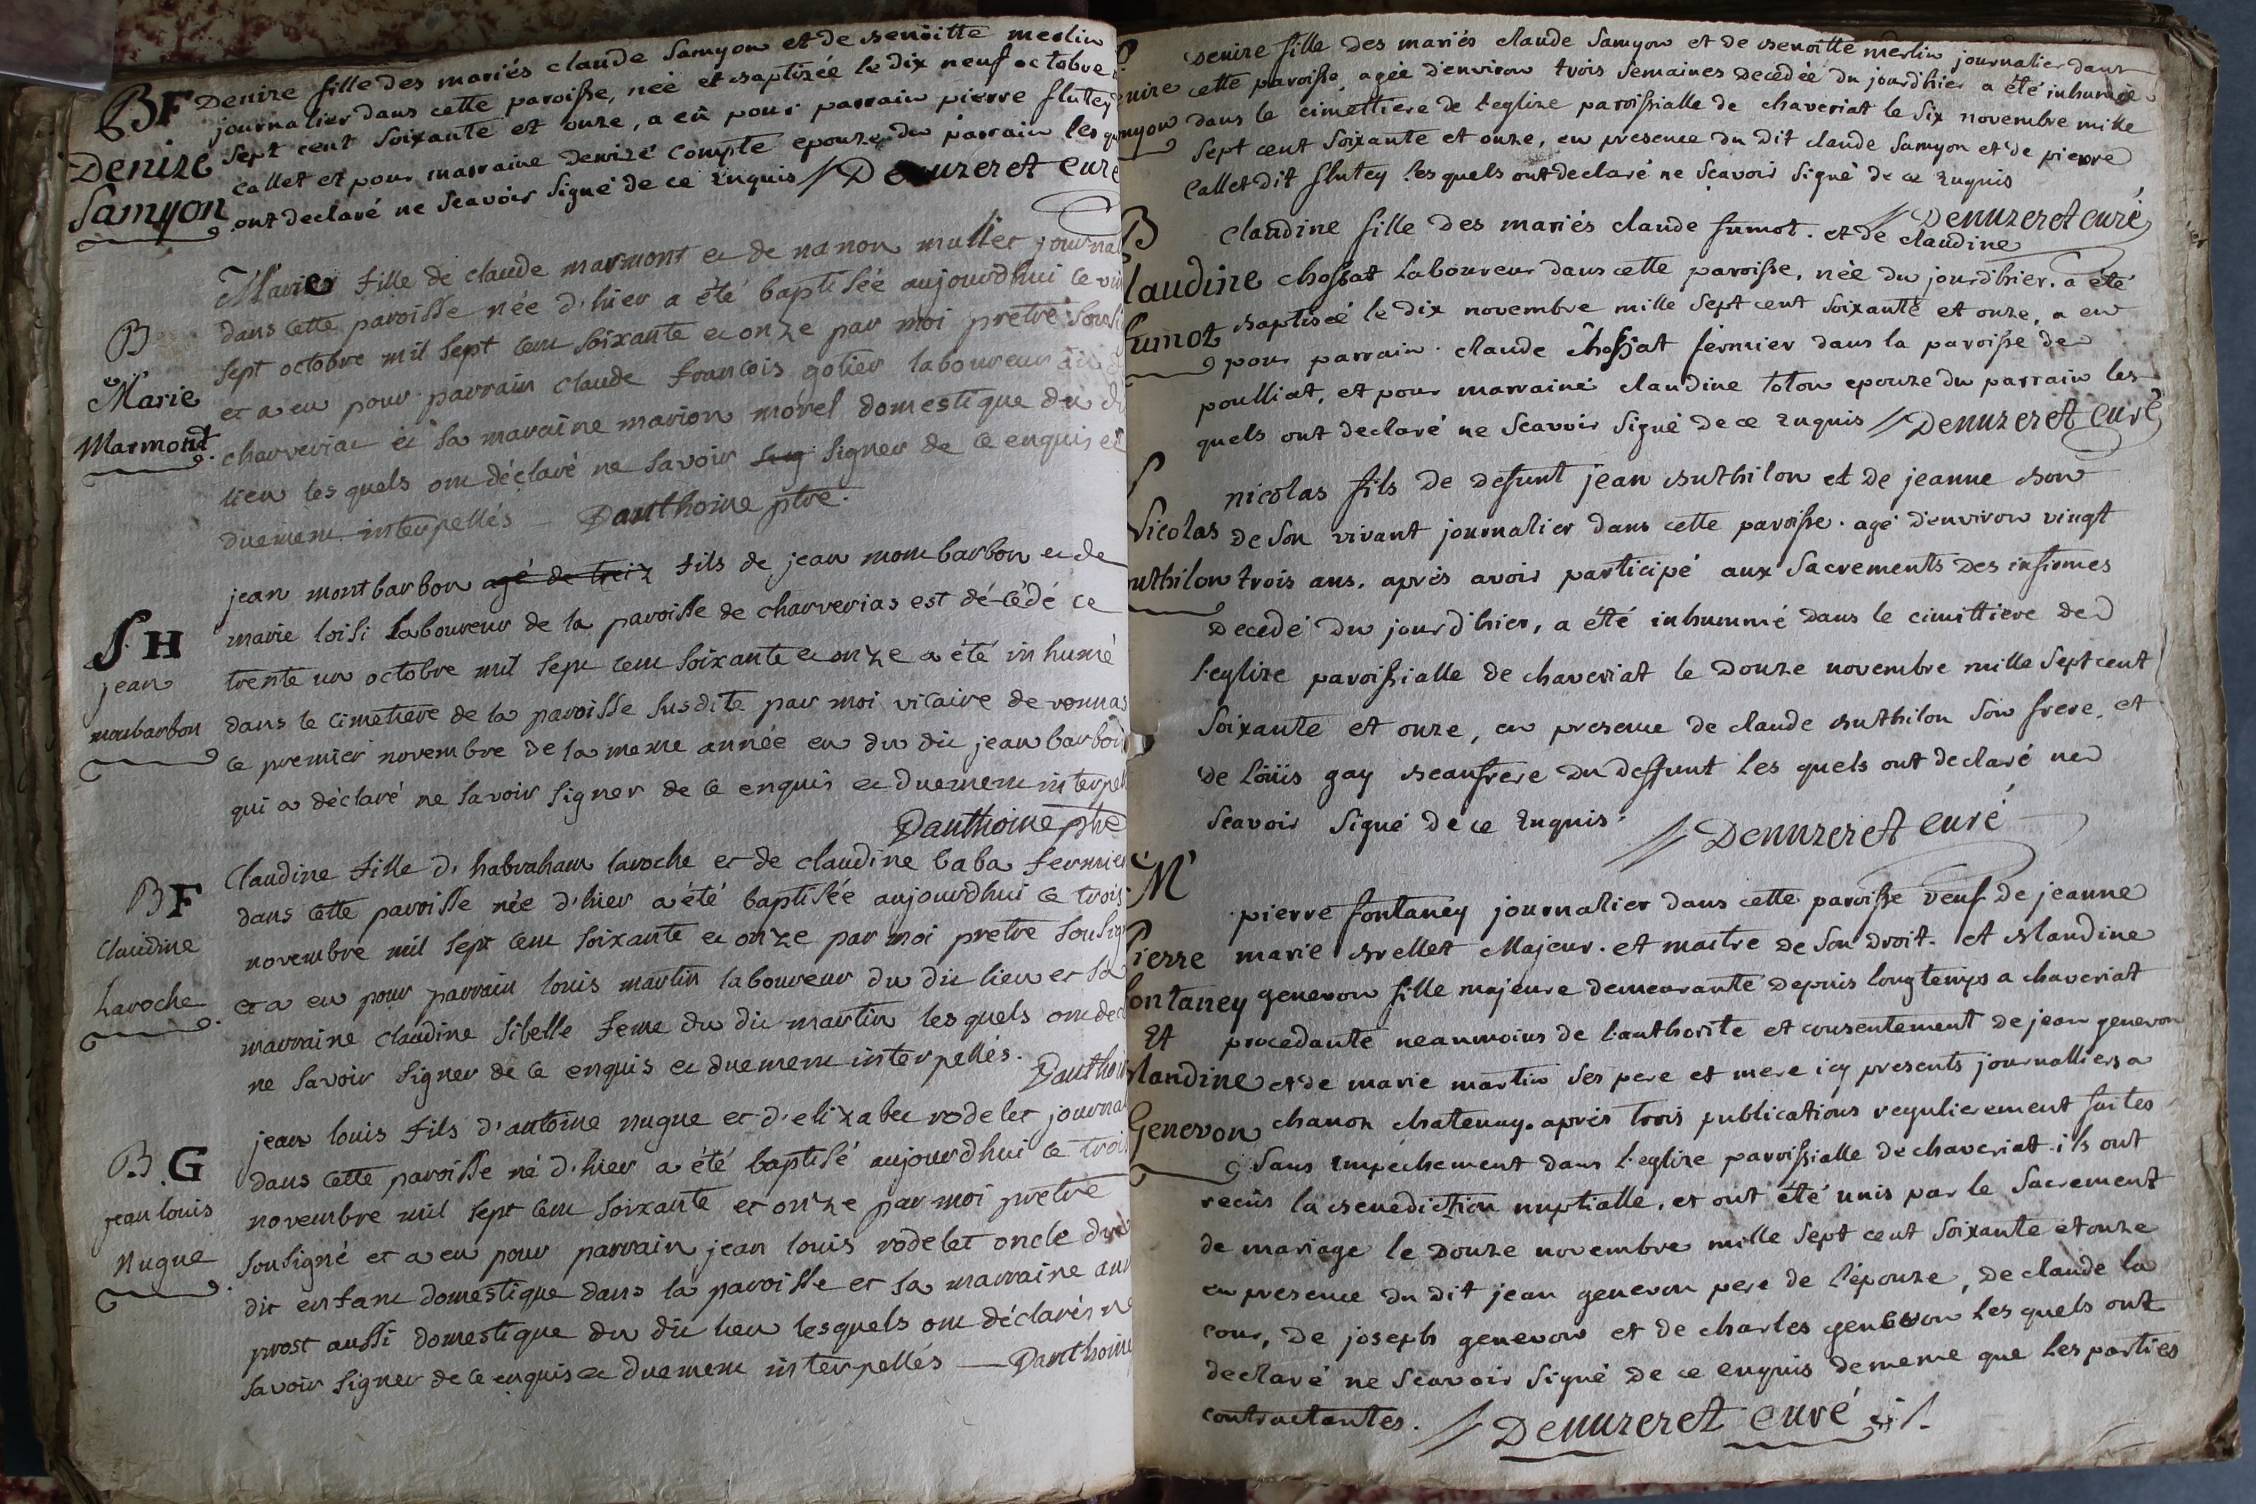 BF
Denize
Samyon
Denize fille des mariés claude Samyon et de benoitte merlin
journalier dans cette paroisse, neé et baptizée le dix neuf octobre
sept cent soixante et onze, a eû pour parrain pierre flutey
callet et pour marraine denizé Compte epouze du parrain les qu
ont declaré ne scavoir signé de ce Enquis // Denuzeret curé
B
Marie
Marmont.
Marie fille de claude marmont et de nanon mullet journal
dans cette paroisse née d'hier a été baptisée aujourd'hui ce vin
sept octobre mil sept cent soixante et onze par moi pretre sousi
et a eu pour parrain claude françois gotier laboureur
charveriat et sa maraine marion morel domestique du d
lieu les quels ont déclaré ne savoir sig signer de ce enquis et
duement interpellés — Danthoine ptre.
S. H
jean
monbarbon
jean montbarbon agé de treiz fils de jean mombarbon et de
marie loisi laboureur de la paroisse de charverias est décédé ce
trente un octobre mil sept cent soixante et onze a été inhumé
dans le cimetiere de la paroisse susdite par moi vicaire de vonnas
ce premier novembre de la meme année en du dit jean barbon
qui a déclaré ne savoir signer de ce enquis et duement interpel
Danthoine ptre
BF
Claudine
Laroche
Claudine fille d'habraham laroche et de claudine baba fermier
dans cette paroisse née d'hier a été baptisée aujourd'hui ce trois
novembre mil sept cent soixante et onze par moi pretre sousign
et a eu pour parrain louis martin laboureur du dit lieu et sa
marraine claudine sibelle feme du dit martin lesquels ont decl
ne savoir signer de ce enquis et duement interpellés. Danthoin
B. G
jean louis
Nugue
jean louis fils d'antoine nugue et d'elizabet rodelet journal
dans cette paroisse né d'hier a été baptisé aujourd'hui ce trois
novembre mil sept cent soixante et onze par moi pretre
sousigné et a eu pour parrain jean louis rodelet oncle du
dit enfant domestique dans la paroisse et sa marraine
prost aussi domestique du dit lieu lesquels ont déclarés ne
savoir signer de ce enquis et duement interpellés — Danthoine
S
enize
myon
Denize fille des mariés claude Samyon et de benoitte merlin journalier dans
cette paroisse, agée d'environ trois semaines decedée du jourd'hier a été inhumée
dans le cimettiere de leglize paroissialle de chaveriat le six novembre mille
sept cent soixante et onze, en presence du dit claude Samyon et de pierre
Callet dit flutey lesquels ont declaré ne scavoir signé de ce Enquis
// Denuzeret curé
B
laudine
fumot
claudine fille des mariés claude fumot. et de claudine
chossat Laboureur dans cette paroisse, née du jourd'hier. a été
baptiseé le dix novembre mille sept cent soixante et onze, a eu
pour parrain claude chossat fermier dans la paroisse de
poulliat, et pour marraine claudine toton epouze du parrain les
quels ont declaré ne scavoir signé de ce Enquis // Denuzeret curé
S
Nicolas
uthilon
nicolas fils de defunt jean buthilon et de jeanne bon
de son vivant journalier dans cette paroisse. agé d'environ vingt
trois ans, aprés avoir participé aux Sacrements des infirmes
decedé du jourd'hier, a été inhummé dans le cimittiere de
l'eglize paroissialle de chaveriat le douze novembre mille sept cent
soixante et onze, en presence de claude buthilon son frere, et
de Loüis gay beaufrere du deffunt les quels ont declaré ne
scavoir signé de ce Enquis.
// Denuzeret curé
M
Pierre
fontaney
Et
blandine
Genevon
pierre fontaney journalier dans cette paroisse veuf de jeanne
marie brellet Majeur. et maitre de son droit. et blandine
genevon fille majeure demeurante depuis longtemps a chaveriat
procedante neanmoins de l'authorité et consentement de jean genevon
et de marie martin ses pere et mere icy presents journalliers a
chanoz chatenay. aprés trois publications regulierement faites
sans Empechement dans l'eglize paroissialle de chaveriat. ils ont
recûs la benediction nuptialle, et ont été unis par le Sacrement
de mariage le douze novembre mille sept cent soixante et onze
en presence du dit jean genevon pere de l'épouze, de claude la
cour, de joseph genevon et de charles genevon les quels ont
declaré ne scavoir signé de ce enquis de meme que les parties
contractantes. // Denuzeret curé